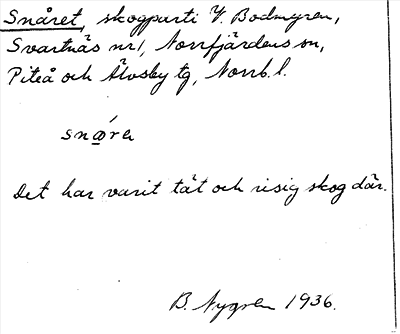 Snåret, skogparti V. Bodmyren,
Svartnäs nr 1, Norrfjärdens sn,
Piteå och Älvsby tg, Norrb. l.
snǻrea
Det har varit tät och risig skog där.
B. Nygren 1936.